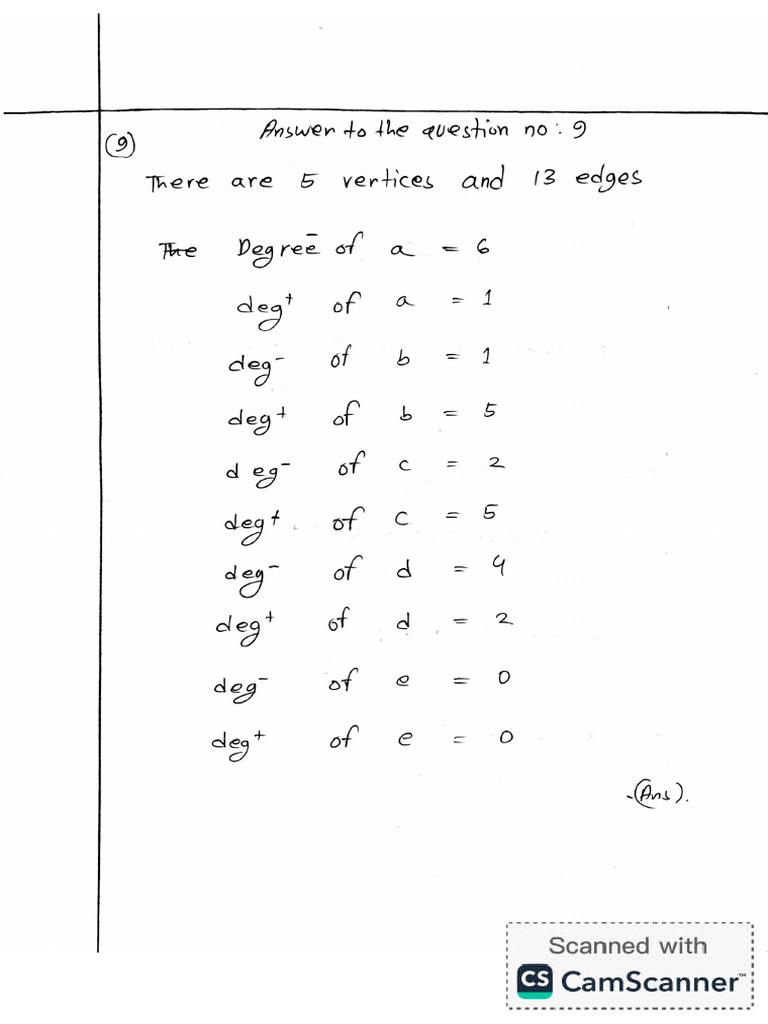 Answer to the question no: 9
(9)
There are 5 vertices and 13 edges
The Degree⁻ of a = 6
deg⁺ of a = 1
deg⁻ of b = 1
deg⁺ of b = 5
deg⁻ of c = 2
deg⁺ of c = 5
deg⁻ of d = 4
deg⁺ of d = 2
deg⁻ of e = 0
deg⁺ of e = 0
-(Ans).
Scanned with
CS CamScanner™